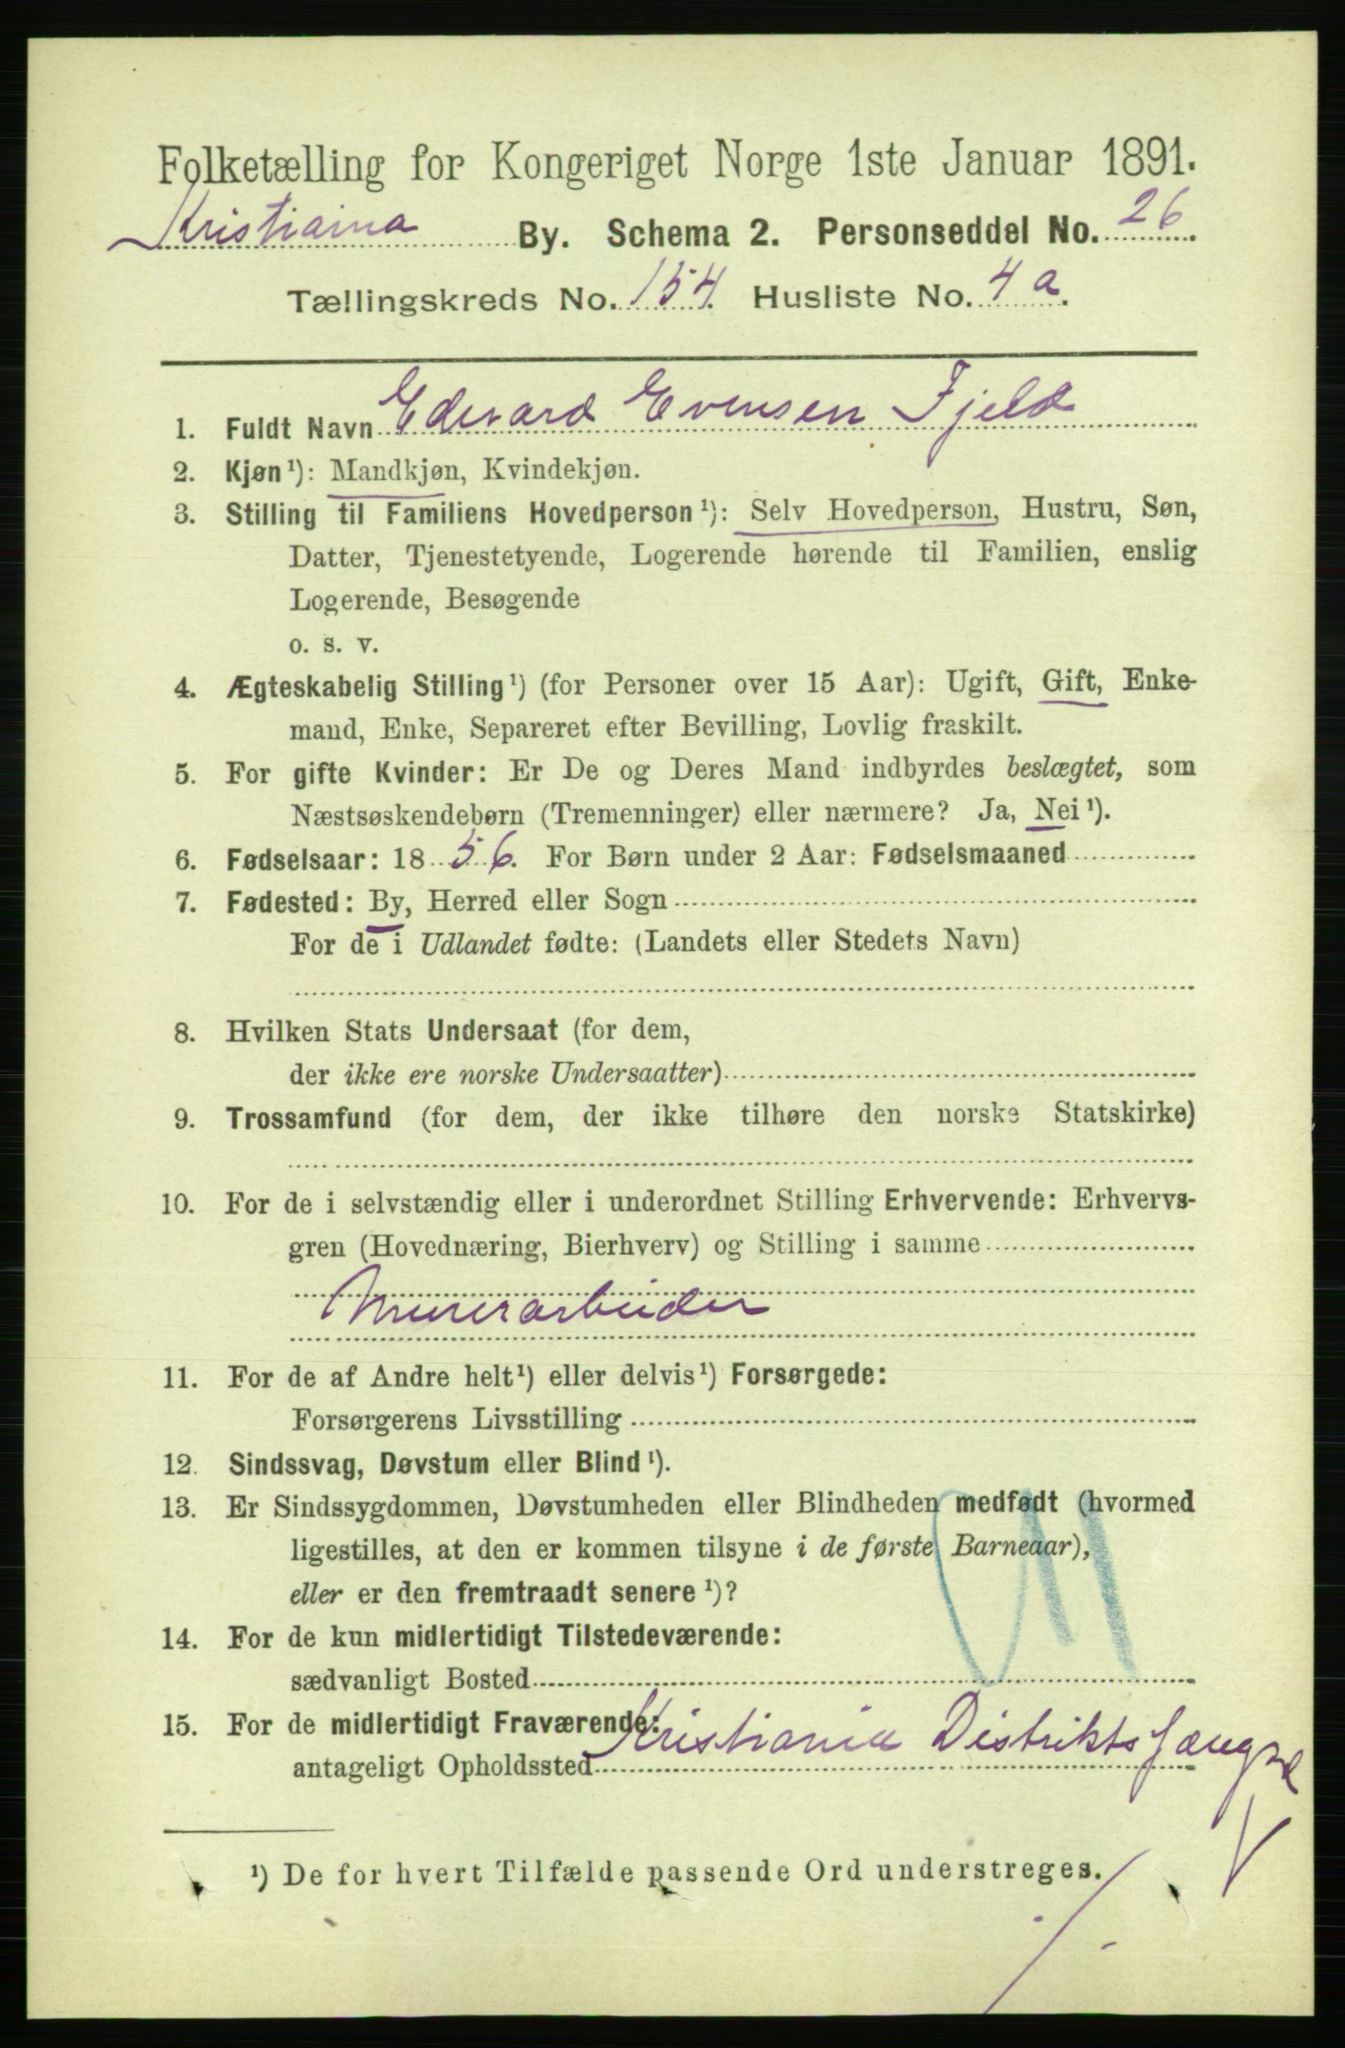 Folketælling for Kongeriget Norge 1ste Januar 1891.
Kristiania By. Schema 2. Personseddel No. 26
Tællingskreds No. 154. Husliste No. 4a.
1. Fuldt Navn Edevard Evensen Fjeld
2. Kjøn¹): Mandkjøn, Kvindekjøn.
3. Stilling til Familiens Hovedperson¹): Selv Hovedperson, Hustru, Søn,
Datter, Tjenestetyende, Logerende hørende til Familien, enslig
Logerende, Besøgende
o. s. v.
4. Ægteskabelig Stilling¹) (for Personer over 15 Aar): Ugift, Gift, Enke-
mand, Enke, Separeret efter Bevilling, Lovlig fraskilt.
5. For gifte Kvinder: Er De og Deres Mand indbyrdes beslægtet, som
Næstsøskendebørn (Tremenninger) eller nærmere? Ja, Nei¹).
6. Fødselsaar: 1856. For Børn under 2 Aar: Fødselsmaaned
7. Fødested: By, Herred eller Sogn
For de i Udlandet fødte: (Landets eller Stedets Navn)
8. Hvilken Stats Undersaat (for dem,
der ikke ere norske Undersaatter)
9. Trossamfund (for dem, der ikke tilhøre den norske Statskirke)
10. For de i selvstændig eller i underordnet Stilling Erhvervende: Erhvervs-
gren (Hovednæring, Bierhverv) og Stilling i samme
Murerarbeider
11. For de af Andre helt¹) eller delvis¹) Forsørgede:
Forsørgerens Livsstilling
12. Sindssvag, Døvstum eller Blind¹).
13. Er Sindssygdommen, Døvstumheden eller Blindheden medfødt (hvormed
ligestilles, at den er kommen tilsyne i de første Barneaar),
eller er den fremtraadt senere¹)?
14. For de kun midlertidigt Tilstedeværende:
sædvanligt Bosted
15. For de midlertidigt Fraværende:
antageligt Opholdssted Kristiania Distriktsfængsel
¹) De for hvert Tilfælde passende Ord understreges.